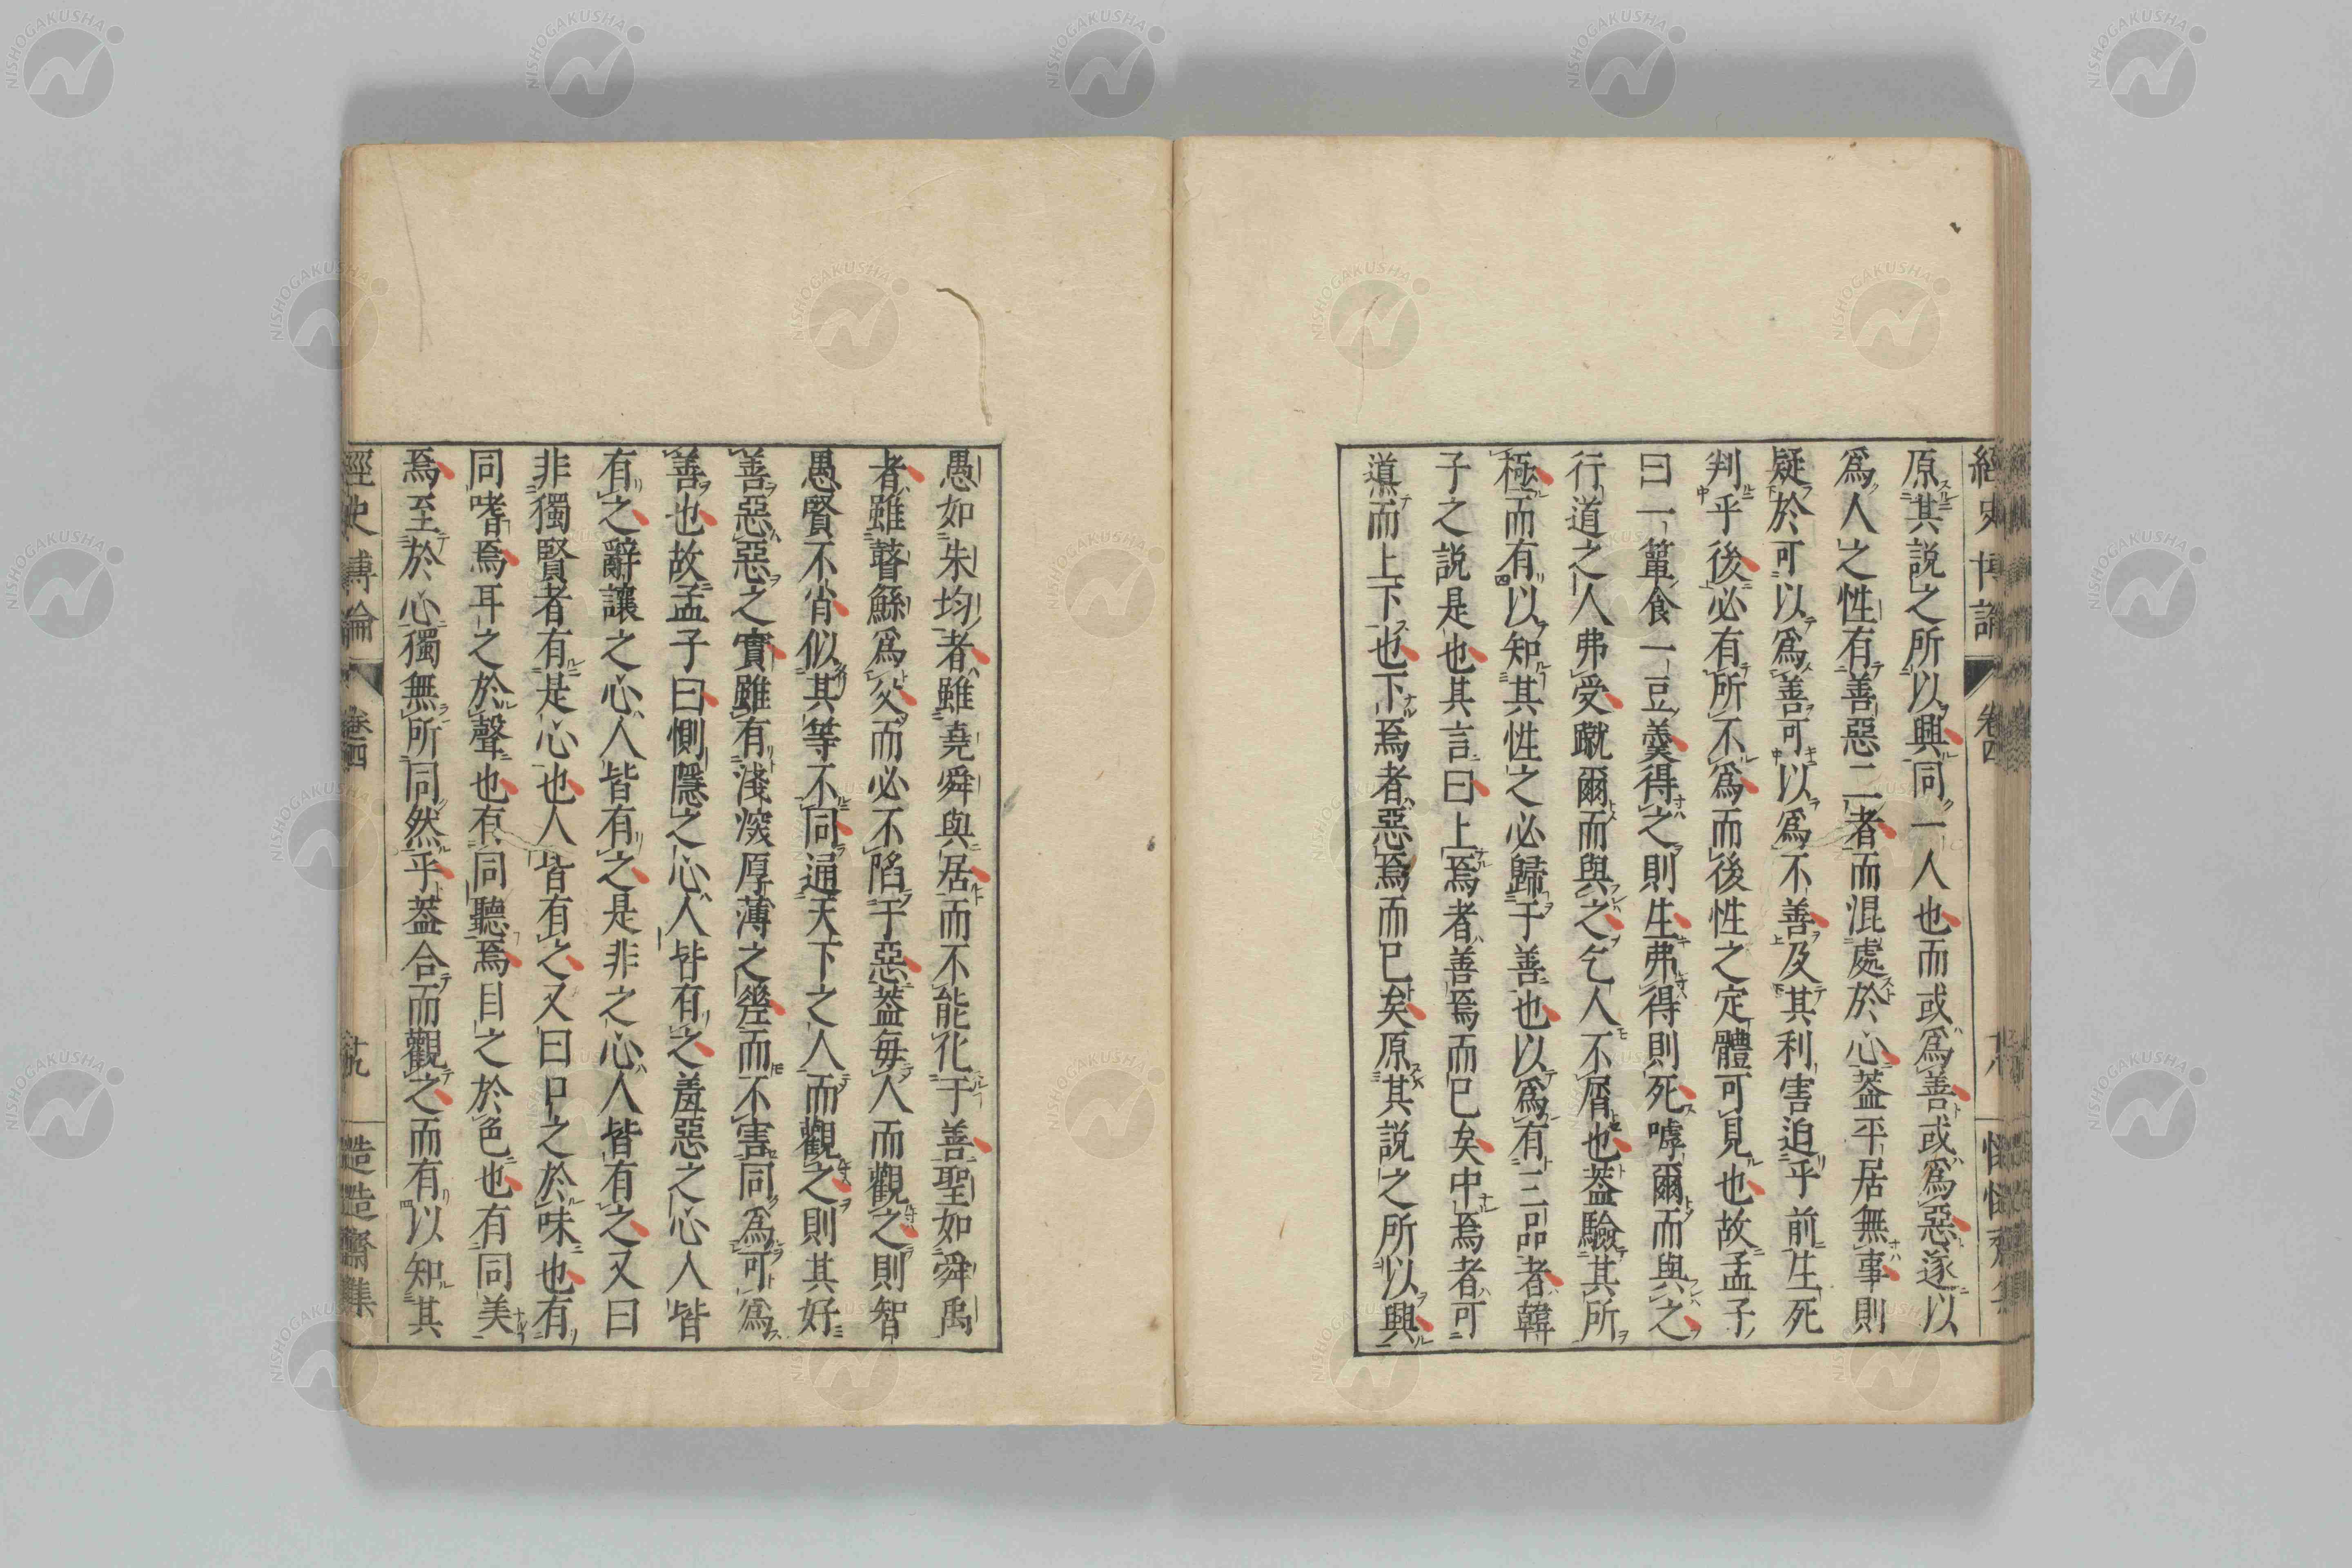 原其説之所以興同一人也而或爲善或爲惡遂以
爲人之性有善惡二者而混處於心葢平居無事則
疑於可以爲善可以爲不善及其利害迫乎前生死
判乎後必有所不爲而後性之定體可見也故孟子
曰一簞食一豆羹得之則生弗得則死嘑爾而與之
行道之人弗受蹴爾而與之乞人不屑也葢驗其所
極而有以知其性之必歸于善也以爲有三品者韓
子之説是也其言曰上焉者善焉而已矣中焉者可
導而上下也下焉者惡焉而已矣原其説之所以興
愚如朱均者雖堯舜與居而不能化于善聖如舜禹
者雖瞽鯀爲父而必不陷于惡葢毎人而觀之則智
愚賢不肖似其等不同通天下之人而觀之則其好
善惡惡之實雖有淺深厚薄之差而不害同爲可爲
善也故孟子曰惻隱之心人皆有之羞惡之心人皆
有之辭讓之心人皆有之是非之心人皆有之又曰
非獨賢者有是心也人皆有之又曰口之於味也有
同嗜焉耳之於聲也有同聽焉目之於色也有同美
焉至於心獨無所同然乎葢合而觀之而有以知其
經史博論
卷四
十九
慥慥齋集